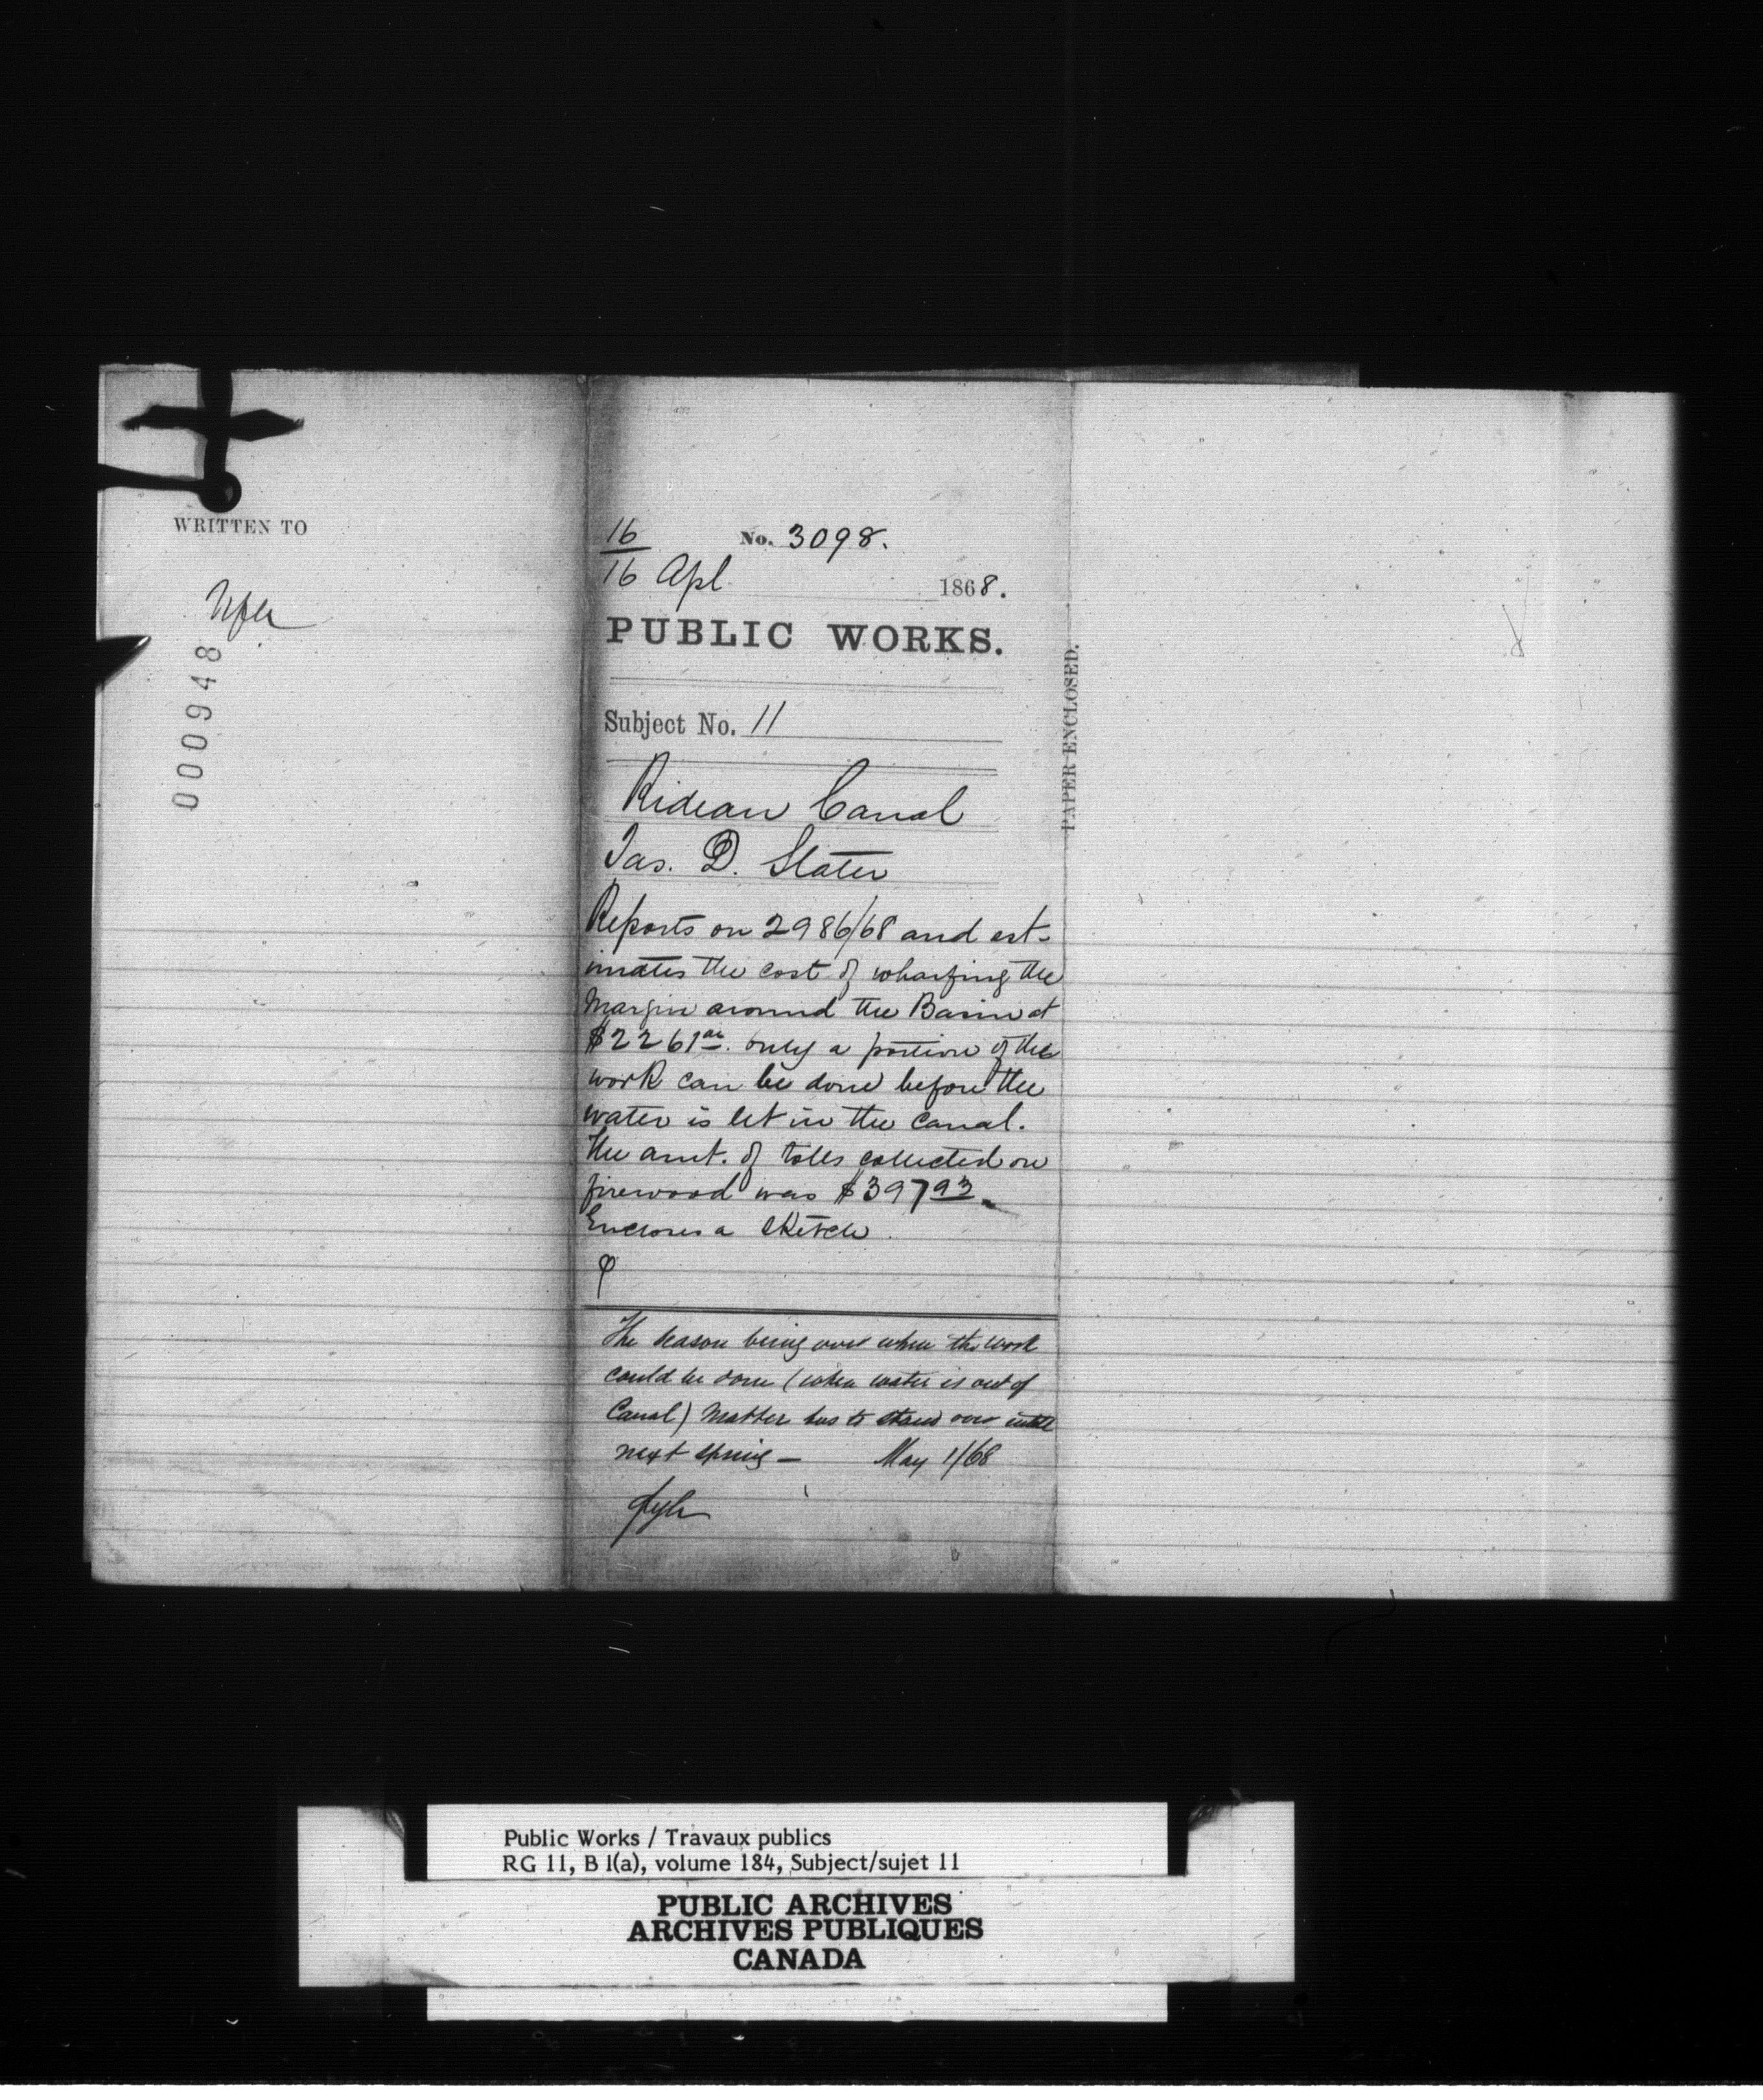 WRITTEN TO
000948
16
16 Apl
No. 3098.
1868.
PUBLIC WORKS.
Subject No. 11
Rideau Canal
Jas. D. Slater
Reports on 2986/68 and est-
imates the cost of wharfing the
Margin around the Basin at
$2261 only a portion of the
work can be done before the
water is let in the canal.
The amt. of tolls collected on
firewood was $397 93
Encloses a sketch.
The season being over when the work
could be done (when water is out of
Canal) Matter has to stand over until
next spring — May 1/68
PAPER ENCLOSED.
Public Works / Travaux publics
RG 11, B 1(a), volume 184, Subject/sujet 11
PUBLIC ARCHIVES
ARCHIVES PUBLIQUES
CANADA